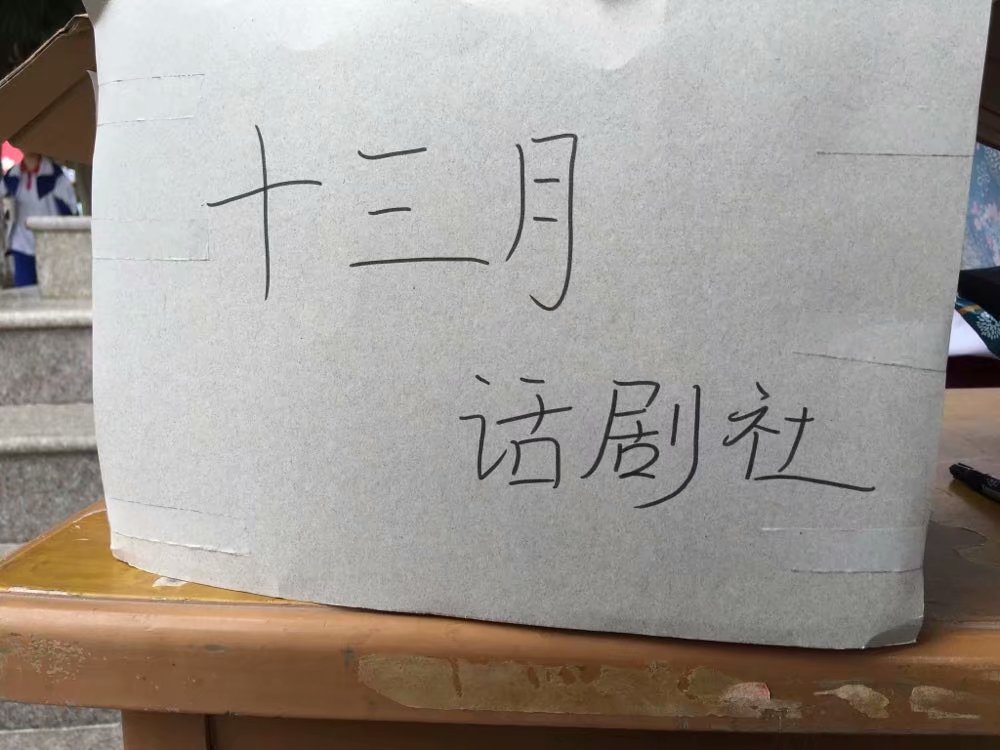 十三月
话剧社